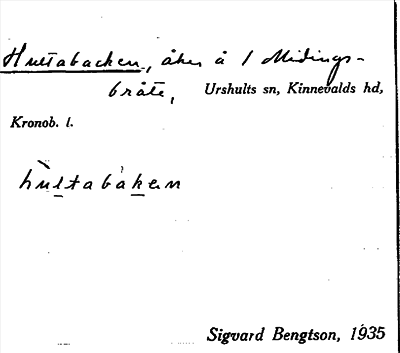 Hultabacken, åker å 1 Midings-
bråte, Urshults sn, Kinnevalds hd,
Kronob. l.
hùltabáken
Sigvard Bengtson, 1935